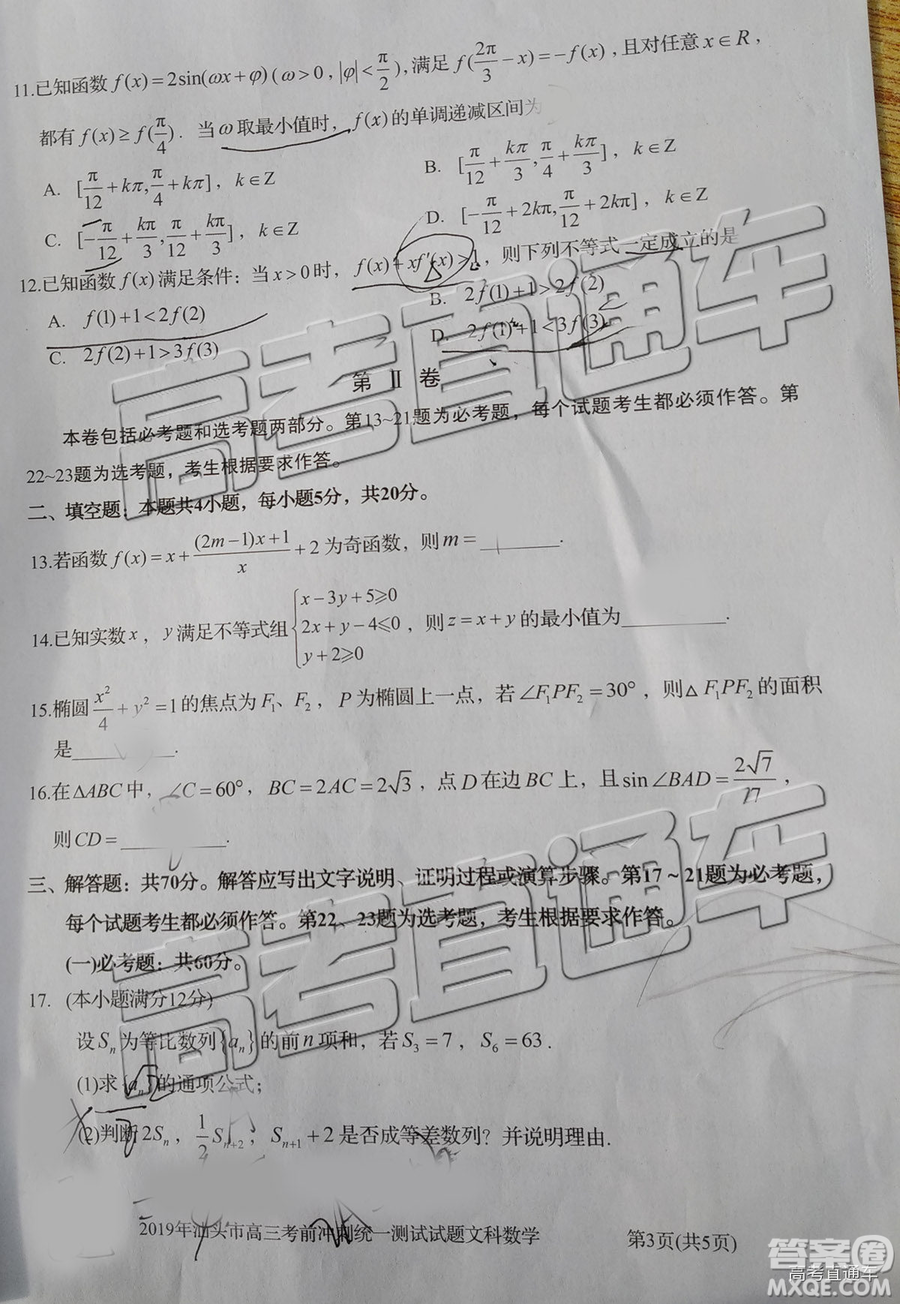 11.已知函数 f(x)=2sin(ωx+φ)(ω>0,|φ|<π/2),满足 f(2π/3−x)=−f(x),且对任意 x∈R,
都有 f(x)≥f(π/4). 当ω取最小值时,f(x)的单调递减区间为
A. [π/12+kπ,π/4+kπ], k∈Z
B. [π/12+kπ/3,π/4+kπ/3], k∈Z
C. [−π/12+kπ/3,π/12+kπ/3], k∈Z
D. [−π/12+2kπ,π/12+2kπ], k∈Z
12.已知函数 f(x)满足条件:当x>0时, f(x)+xf′(x)>1,则下列不等式一定成立的是
A. f(1)+1<2f(2)
B. 2f(1)+1>2f(2)
C. 2f(2)+1>3f(3)
D. 2f(1)+1<3f(3)
第 Ⅱ 卷
本卷包括必考题和选考题两部分。第13~21题为必考题,每个试题考生都必须作答。第
22~23题为选考题,考生根据要求作答。
二、填空题:本题共4小题,每小题5分,共20分。
13.若函数 f(x)=x+((2m−1)x+1)/x+2为奇函数,则m=______.
14.已知实数x,y满足不等式组{x−3y+5⩾0 2x+y−4⩽0 y+2⩾0,则z=x+y的最小值为______.
15.椭圆x²/4+y²=1的焦点为F₁、F₂,P为椭圆上一点,若∠F₁PF₂=30°,则△F₁PF₂的面积
是______.
16.在△ABC中,∠C=60°,BC=2AC=2√3,点D在边BC上,且sin∠BAD=2√7/7,
则CD=______.
三、解答题:共70分。解答应写出文字说明、证明过程或演算步骤。第17~21题为必考题,
每个试题考生都必须作答。第22、23题为选考题,考生根据要求作答。
(一)必考题:共60分。
17. (本小题满分12分)
设Sₙ为等比数列{aₙ}的前n项和,若S₃=7,S₆=63.
(1)求{aₙ}的通项公式;
(2)判断2Sₙ,1/2Sₙ₊₂,Sₙ₊₁+2是否成等差数列?并说明理由.
2019年汕头市高三考前冲刺统一测试试题文科数学
第3页(共5页)
高考直通车
高考直通车
答案圈
高考直通车
MXQE.COM